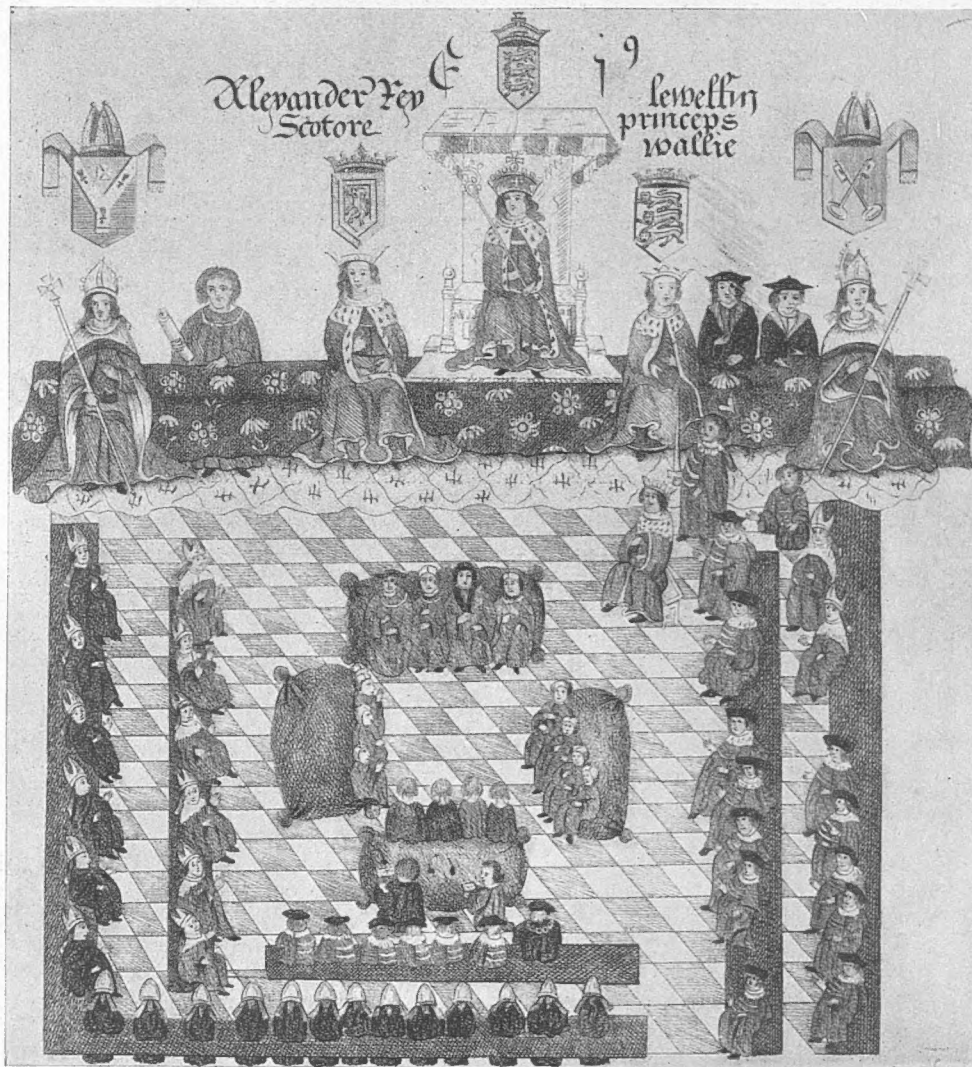 E j 9
Alexander Rex
Scotore
lewellin
princeps
wallie